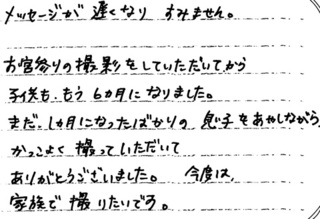 メッセージが 遅くなり すみません。
お宮参りの撮影をしていただいてから
子供も、もう 6ヵ月になりました。
まだ、1ヵ月になったばかりの 息子をあやしながら
かっこよく 撮っていただいて
ありがとうございました。 今度は、
家族で 撮りたいです。